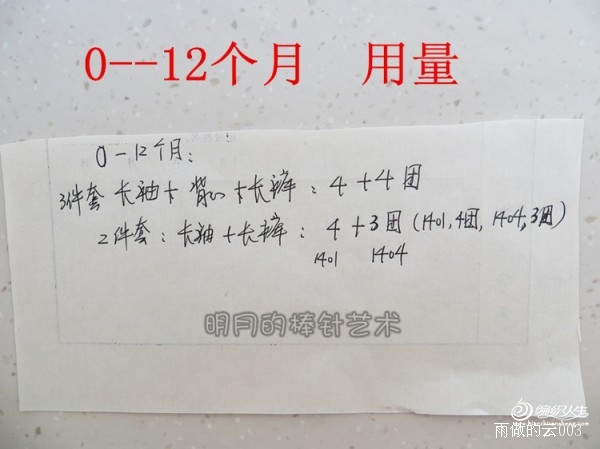 0--12个月 用量
0-12个月:
3件套 长袖+背心+长裤:4+4团
2件套:长袖+长裤:4+3团(1401,4团,1404,3团)
1401 1404
明月的棒针艺术
编织人生
雨做的云003